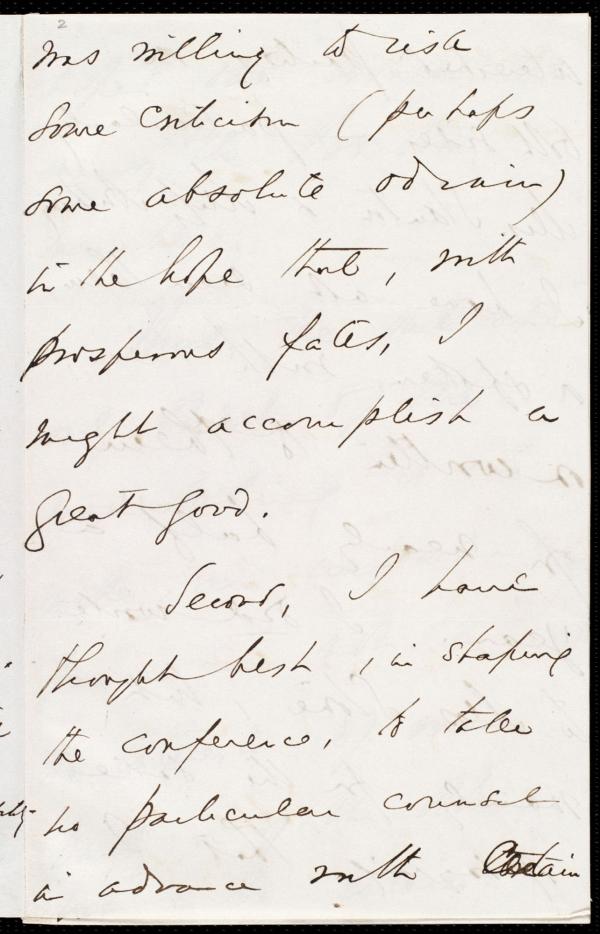 2
was willing to risk
some criticism (perhaps
some absolute odium)
in the hope that, with
prosperous fates, I
might accomplish a
great good.
Second, I have
thought best, in shaping
the conference, to take
no particular counsel
in advance with certain